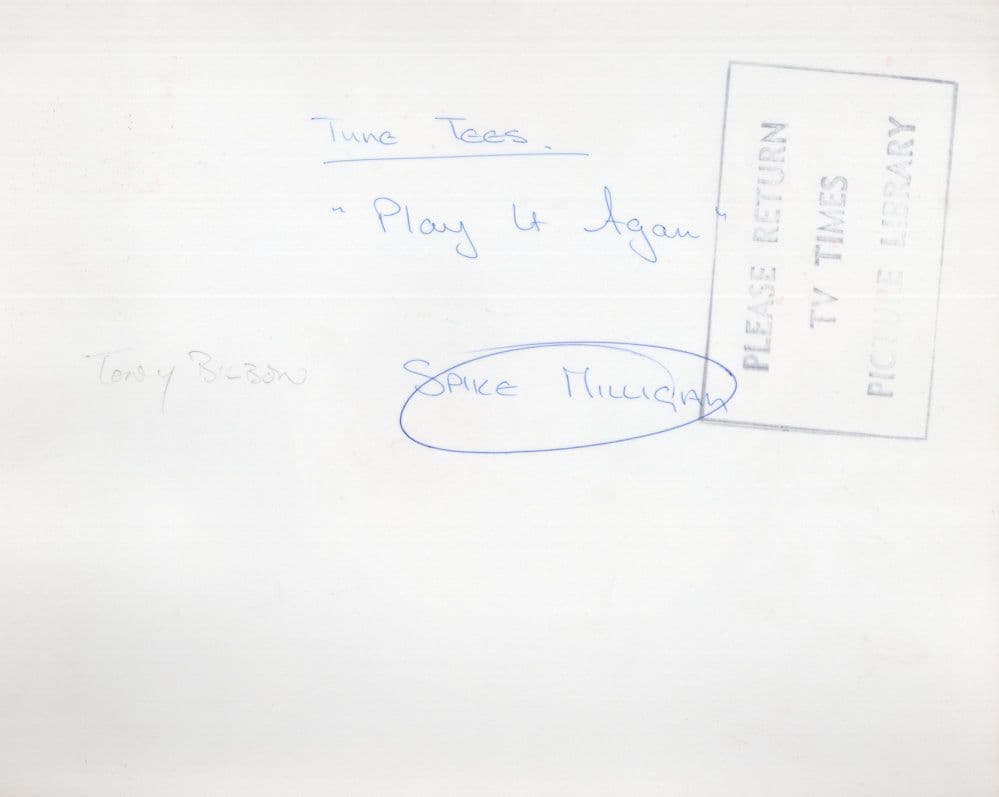 Tyne Tees.
"Play It Again"
Tony Bilbow
SPIKE MILLIGAN
PLEASE RETURN
TV TIMES
PICTURE LIBRARY